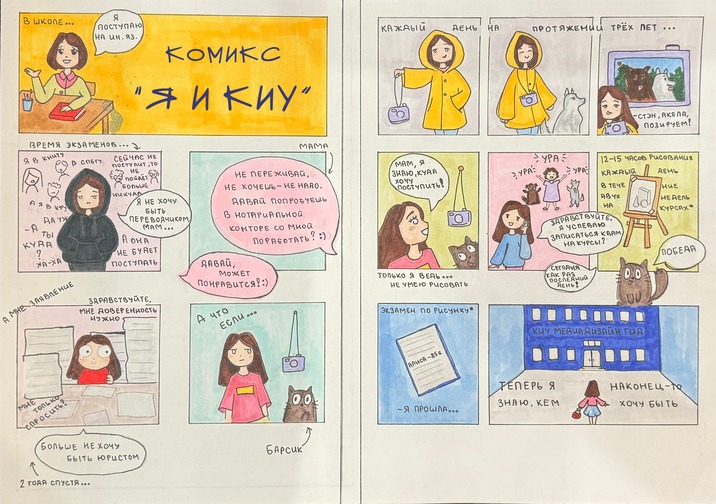 В ШКОЛЕ...
Я
ПОСТУПАЮ
НА ИН. ЯЗ.
КОМИКС
"Я И КИУ"
ВРЕМЯ ЭКЗАМЕНОВ...
Я В КНИТУ
Я В СПБГУ
Я В КГУ
СЕЙЧАС НЕ
ПОСТУПИТ, ТО
НЕ ПОЙДЁТ
БОЛЬШЕ
НИКУДА
-А ТЫ
КУДА
?
ХА-ХА
Я НЕ ХОЧУ
БЫТЬ
ПЕРЕВОДЧИКОМ
МАМ...
А ОНА
НЕ БУДЕТ
ПОСТУПАТЬ
МАМА
НЕ ПЕРЕЖИВАЙ,
НЕ ХОЧЕШЬ-НЕ НАДО.
ДАВАЙ ПОПРОБУЕШЬ
В НОТАРИАЛЬНОЙ
КОНТОРЕ СО МНОЙ
ПОРАБОТАТЬ? :)
ДАВАЙ,
МОЖЕТ
ПОНРАВИТСЯ?:)
А МНЕ ЗАЯВЛЕНИЕ
ЗДРАВСТВУЙТЕ,
МНЕ ДОВЕРЕННОСТЬ
НУЖНО
МНЕ
ТОЛЬКО
СПРОСИТЬ?
БОЛЬШЕ НЕ ХОЧУ
БЫТЬ ЮРИСТОМ
2 ГОДА СПУСТЯ...
А ЧТО
ЕСЛИ...
БАРСИК
КАЖДЫЙ ДЕНЬ НА ПРОТЯЖЕНИИ ТРЁХ ЛЕТ ...
-СТЭН, АКЕЛА,
ПОЗИРУЕМ!
МАМ, Я
ЗНАЮ, КУДА
ХОЧУ
ПОСТУПИТЬ!
ТОЛЬКО Я ВЕДЬ...
НЕ УМЕЮ РИСОВАТЬ
УРА
УРА
УРА
ЗДРАВСТВУЙТЕ,
Я УСПЕВАЮ
ЗАПИСАТЬСЯ К ВАМ
НА КУРСЫ?
СЕГОДНЯ
КАК РАЗ
ПОСЛЕДНИЙ
ДЕНЬ!
12-15 ЧАСОВ РИСОВАНИЯ
КАЖДЫЙ ДЕНЬ
В ТЕЧЕНИЕ
ДВУХ НЕДЕЛЬ
НА КУРСАХ*
ПОБЕДА
ЭКЗАМЕН ПО РИСУНКУ*
АЛИСА -85б
-Я ПРОШЛА...
КИУ МЕДИАДИЗАЙН ГИД
ТЕПЕРЬ Я НАКОНЕЦ-то
ЗНАЮ, КЕМ ХОЧУ БЫТЬ